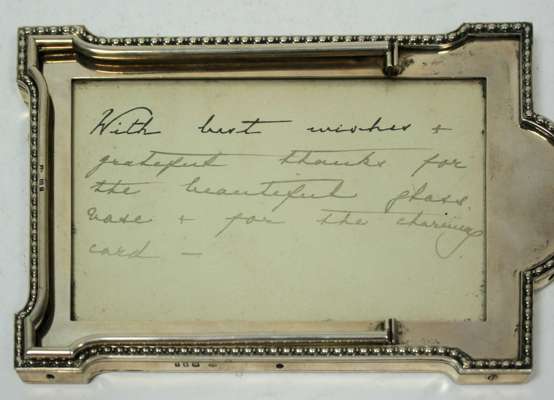 With best wishes +
grateful thanks for
the beautiful glass
vase + for the charming
card -